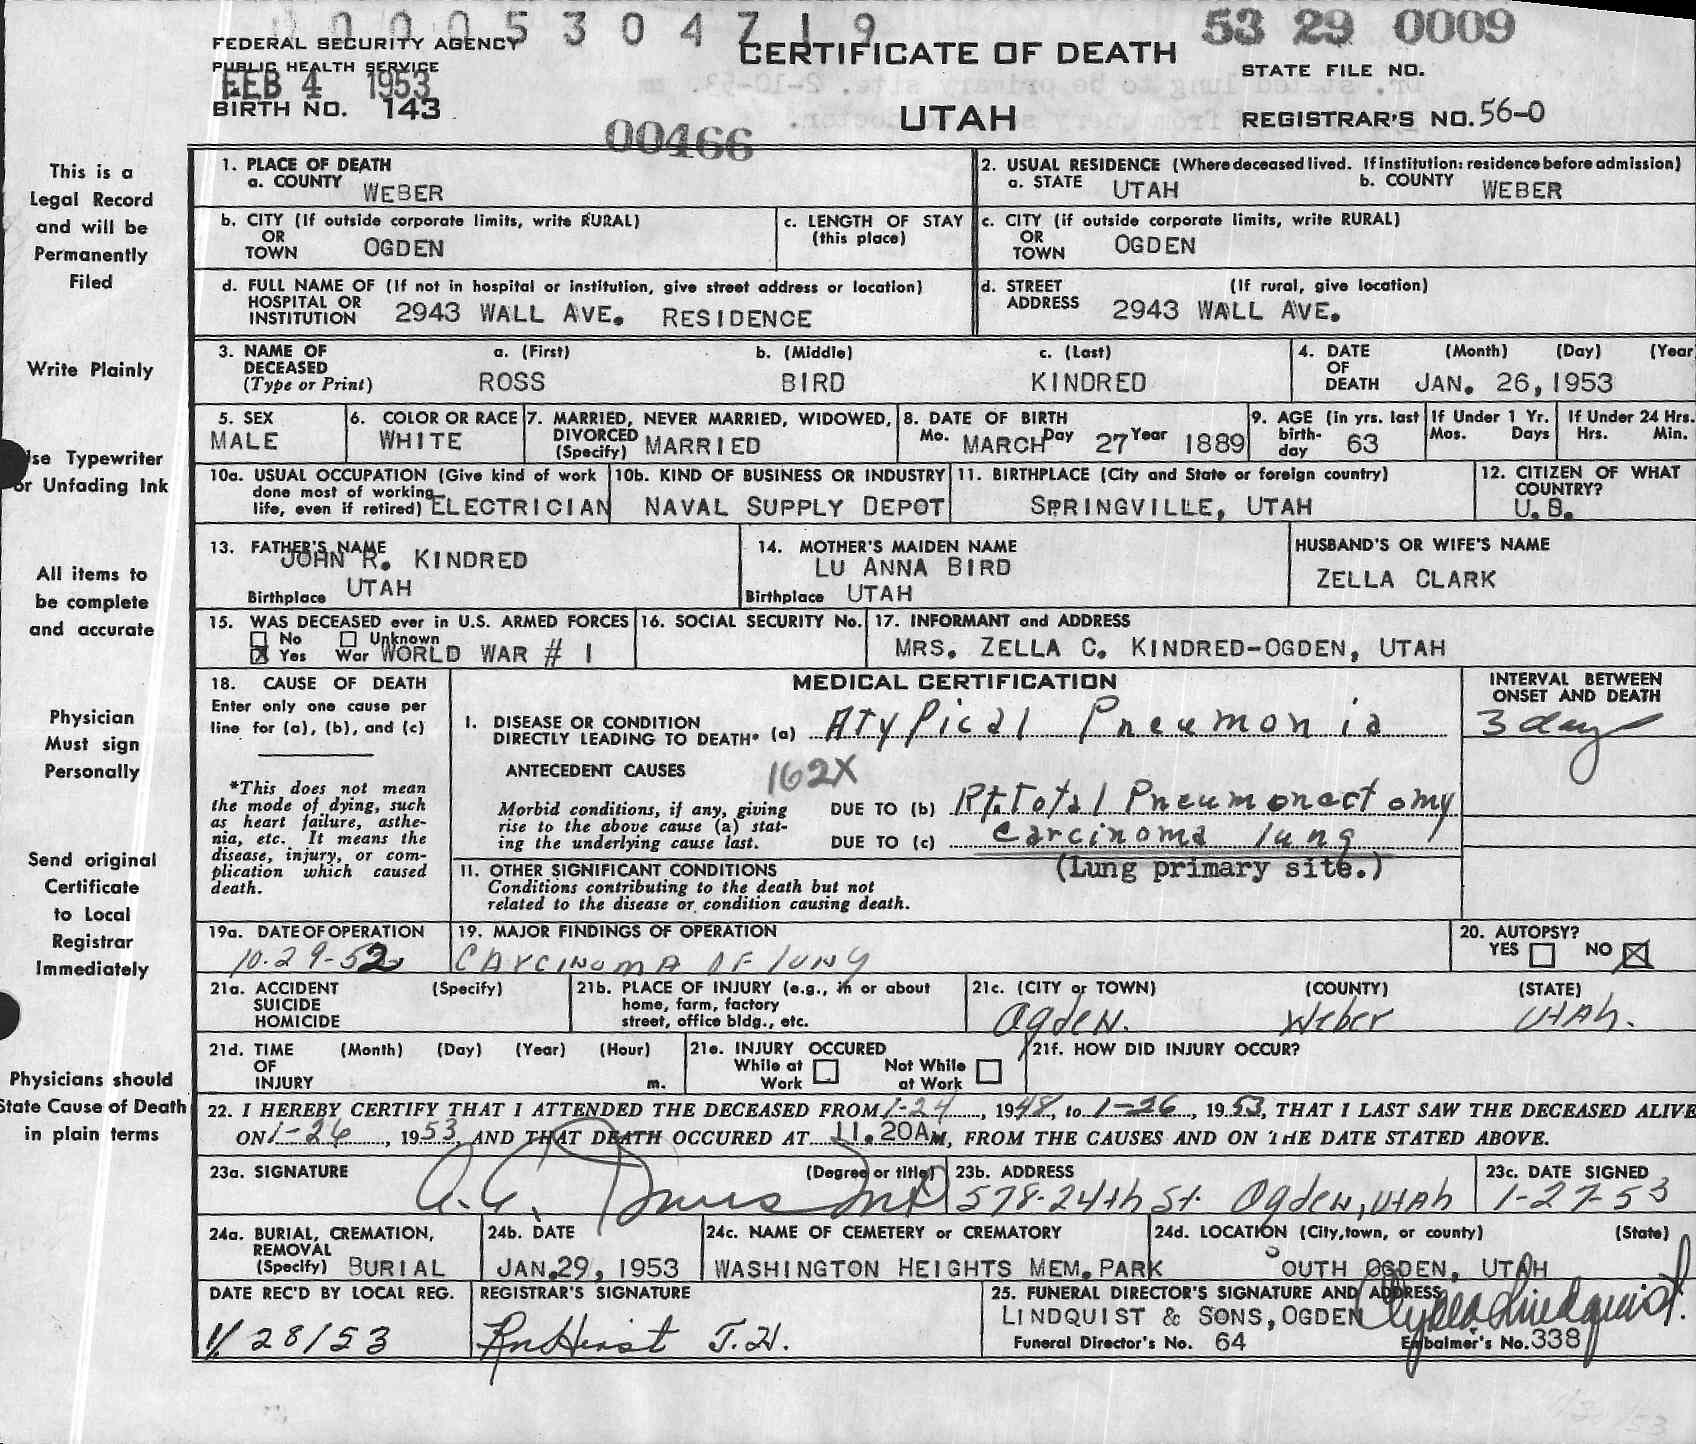 0000530471 9
53 29 0009
FEDERAL SECURITY AGENCY
PUBLIC HEALTH SERVICE
FEB 4 1953
BIRTH NO. 143
00466
CERTIFICATE OF DEATH
UTAH
STATE FILE NO.
REGISTRAR'S NO. 56-0
This is a
Legal Record
and will be
Permanently
Filed
Write Plainly
Use Typewriter
or Unfading Ink
All items to
be complete
and accurate
Physician
Must sign
Personally
Send original
Certificate
to Local
Registrar
Immediately
Physicians should
State Cause of Death
in plain terms
1. PLACE OF DEATH
a. COUNTY WEBER
2. USUAL RESIDENCE (Where deceased lived. If institution: residence before admission)
a. STATE UTAH b. COUNTY WEBER
b. CITY (If outside corporate limits, write RURAL)
OR
TOWN OGDEN
c. LENGTH OF STAY
(this place)
c. CITY (if outside corporate limits, write RURAL)
OR
TOWN OGDEN
d. FULL NAME OF (If not in hospital or institution, give street address or location)
HOSPITAL OR
INSTITUTION 2943 WALL AVE. RESIDENCE
d. STREET (If rural, give location)
ADDRESS 2943 WALL AVE.
3. NAME OF DECEASED (Type or Print)
a. (First) b. (Middle) c. (Last)
ROSS BIRD KINDRED
4. DATE OF DEATH (Month) (Day) (Year
JAN. 26, 1953
5. SEX
MALE
6. COLOR OR RACE
WHITE
7. MARRIED, NEVER MARRIED, WIDOWED,
DIVORCED (Specify) MARRIED
8. DATE OF BIRTH
Mo. MARCH Day 27 Year 1889
9. AGE (in yrs. last birth-day 63
If Under 1 Yr.
Mos. Days
If Under 24 Hrs.
Hrs. Min.
10a. USUAL OCCUPATION (Give kind of work
done most of working
life, even if retired) ELECTRICIAN
10b. KIND OF BUSINESS OR INDUSTRY
NAVAL SUPPLY DEPOT
11. BIRTHPLACE (City and State or foreign country)
SPRINGVILLE, UTAH
12. CITIZEN OF WHAT
COUNTRY?
U.S.
13. FATHER'S NAME
JOHN R. KINDRED
Birthplace UTAH
14. MOTHER'S MAIDEN NAME
LU ANNA BIRD
Birthplace UTAH
HUSBAND'S OR WIFE'S NAME
ZELLA CLARK
15. WAS DECEASED ever in U.S. ARMED FORCES
No Unknown
Yes War WORLD WAR # 1
16. SOCIAL SECURITY No.
17. INFORMANT and ADDRESS
MRS. ZELLA C. KINDRED-OGDEN, UTAH
18. CAUSE OF DEATH
Enter only one cause per
line for (a), (b), and (c)
*This does not mean
the mode of dying, such
as heart failure, asthe-
nia, etc. It means the
disease, injury, or com-
plication which caused
death.
MEDICAL CERTIFICATION
I. DISEASE OR CONDITION
DIRECTLY LEADING TO DEATH* (a) Atypical Pneumonia
ANTECEDENT CAUSES 162X
Morbid conditions, if any, giving
rise to the above cause (a) stat-
ing the underlying cause last.
DUE TO (b) Rt. Total Pneumonectomy
DUE TO (c) Carcinoma lung
(Lung primary site.)
II. OTHER SIGNIFICANT CONDITIONS
Conditions contributing to the death but not
related to the disease or condition causing death.
INTERVAL BETWEEN
ONSET AND DEATH
3 days
19a. DATE OF OPERATION
10-29-52
19. MAJOR FINDINGS OF OPERATION
CARCINOMA OF lung
20. AUTOPSY?
YES NO
21a. ACCIDENT (Specify)
SUICIDE
HOMICIDE
21b. PLACE OF INJURY (e.g., in or about
home, farm, factory
street, office bldg., etc.
21c. (CITY or TOWN) (COUNTY) (STATE)
Ogden. Weber UTAh.
21d. TIME (Month) (Day) (Year) (Hour)
OF
INJURY m.
21e. INJURY OCCURED
While at Work
Not While at Work
21f. HOW DID INJURY OCCUR?
22. I HEREBY CERTIFY THAT I ATTENDED THE DECEASED FROM 1-24, 1948, to 1-26, 1953, THAT I LAST SAW THE DECEASED ALIVE
ON 1-26, 1953, AND THAT DEATH OCCURED AT 11.20AM, FROM THE CAUSES AND ON THE DATE STATED ABOVE.
23a. SIGNATURE (Degree or title)
23b. ADDRESS
578-24th St. Ogden, UTAh
23c. DATE SIGNED
1-27-53
24a. BURIAL, CREMATION,
REMOVAL
(Specify) BURIAL
24b. DATE
JAN.29, 1953
24c. NAME OF CEMETERY or CREMATORY
WASHINGTON HEIGHTS MEM. PARK
24d. LOCATION (City, town, or county) (State)
SOUTH OGDEN, UTAH
DATE REC'D BY LOCAL REG.
1/28/53
REGISTRAR'S SIGNATURE
25. FUNERAL DIRECTOR'S SIGNATURE AND ADDRESS
LINDQUIST & SONS, OGDEN
Funeral Director's No. 64 Embalmer's No. 338